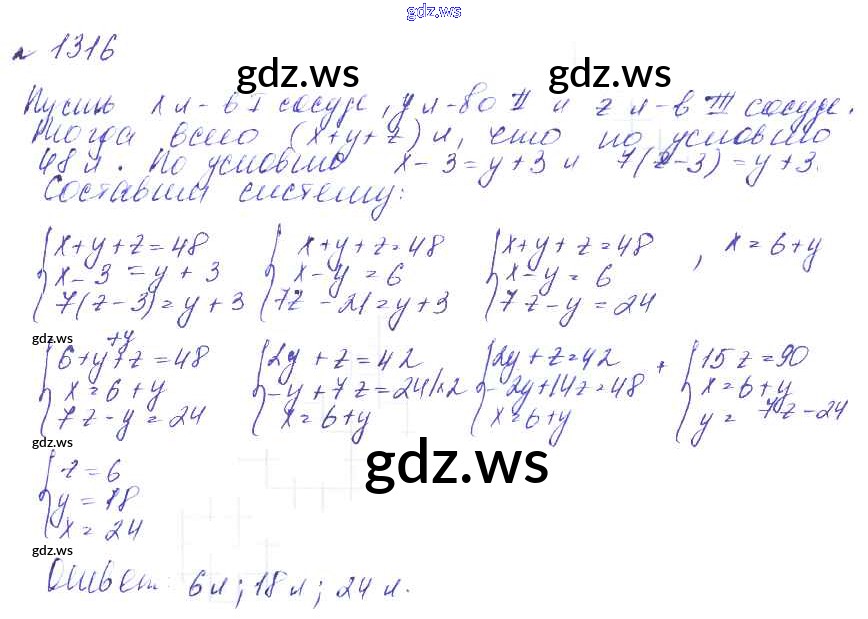 gdz.ws
№ 1316
gdz.ws gdz.ws
Пусть x л - в I сосуде, y л - во II и z л - в III сосуде.
Тогда всего (x+y+z) л, что по условию
48 л. По условию x - 3 = y + 3 и 7(z-3) = y + 3.
Составим систему:
x+y+z=48 x+y+z=48 x+y+z=48 , x = 6+y
x-3=y+3 x-y=6 x-y=6
7(z-3)=y+3 7z-21=y+3 7z-y=24
gdz.ws
6+y+y+z=48 2y+z=42 2y+z=42 + 15z=90
x=6+y -y+7z=24 |x2 -2y+14z=48 x=6+y
7z-y=24 x=6+y x=6+y y=7z-24
gdz.ws
z=6 gdz.ws
y=18
x=24
gdz.ws
Ответ: 6 л; 18 л; 24 л.